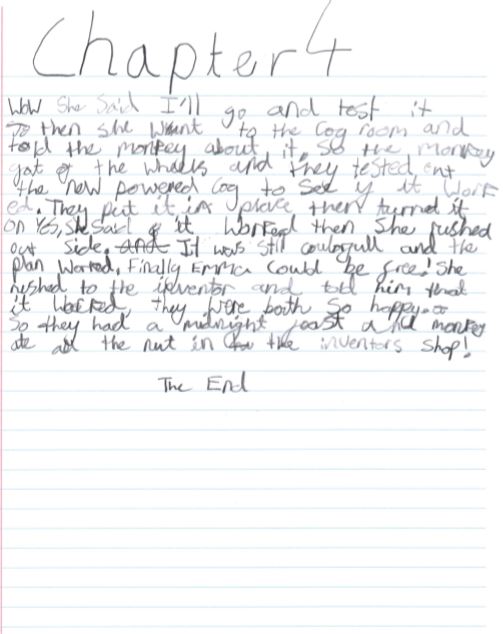 Chapter 4
Wow She Said I'll go and test it
So then she Want to the Cog room and
told the monkey about it. So the monkey
got of the wheels and they tested out
the new powered Cog to See if it Work
ed. They put it in place then turned it
on Yes, She Said it Worked then She rushed
out Side. It was Still coulogull and the
plan Worked, Finally Emma Could be free! She
rushed to the inventor and told him that
it Worked, they Were both So happy.
So they had a midnight and monkey
ate all the nut in the inventors Shop!
The End